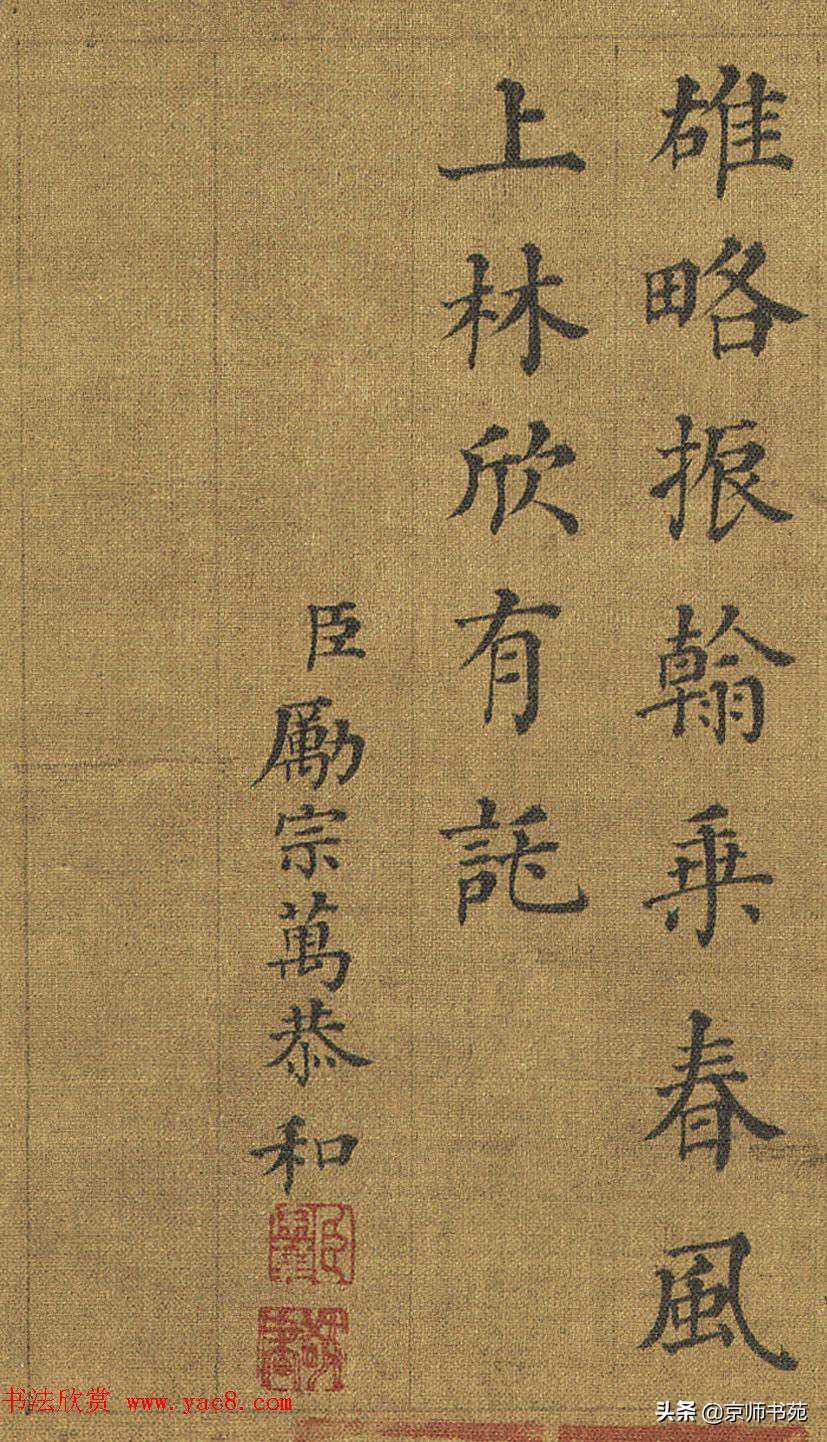 雄略振翰乗春風
上林欣有託
臣勵宗萬恭和
书法欣赏 www.yac8.com
头条 @京师书苑